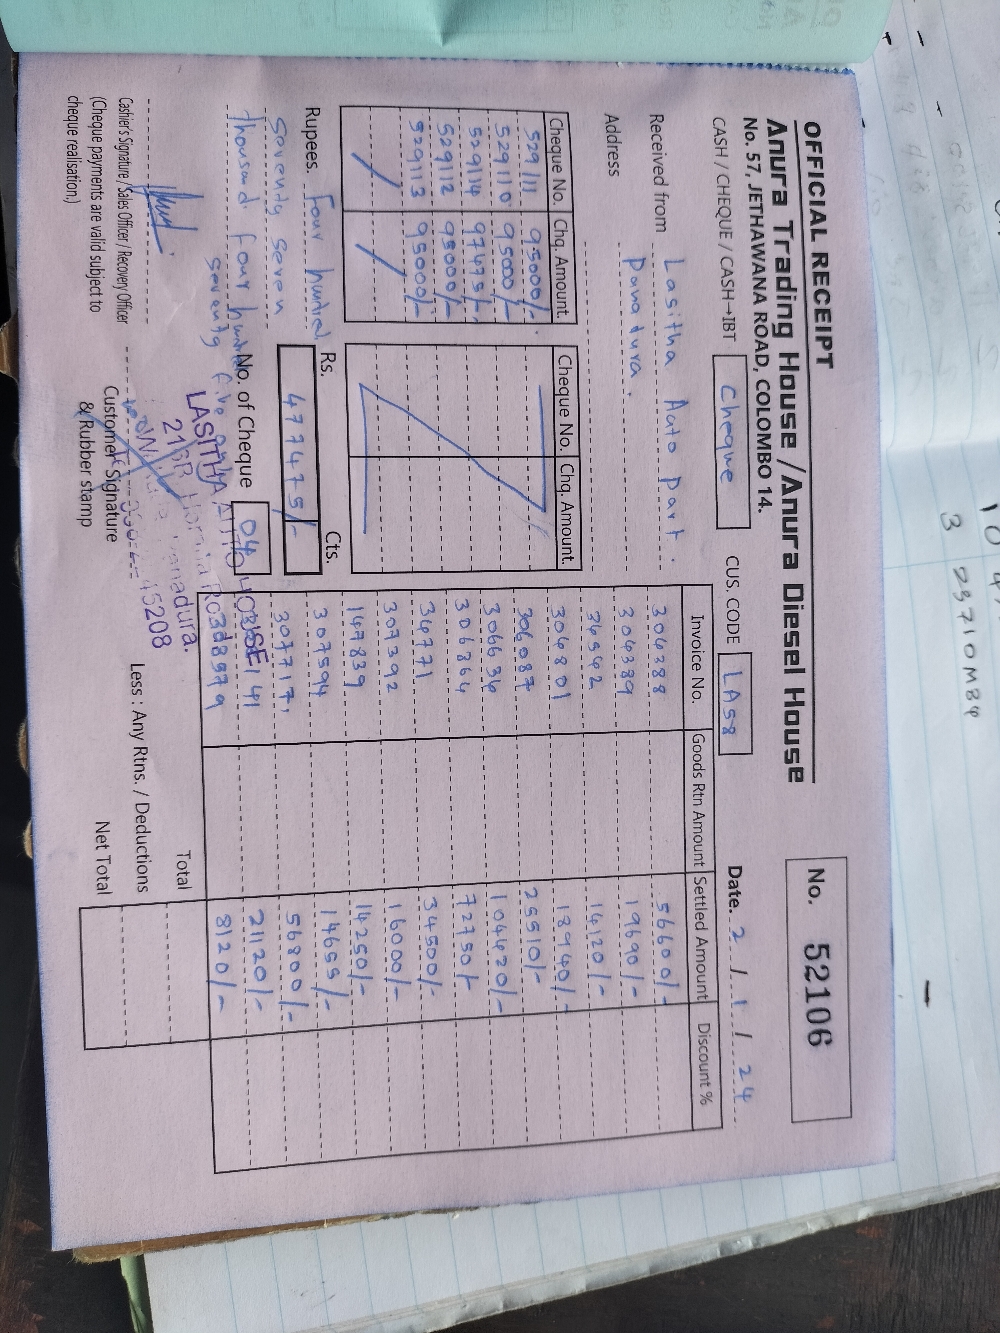 OFFICIAL RECEIPT
No. 52106
Anura Trading House / Anura Diesel House
No. 57, JETHAWANA ROAD, COLOMBO 14.
CASH / CHEQUE / CASH→IBT Cheque CUS. CODE LA58 Date. 2 / 1 / 24
Received from Lasitha Auto part.
Address Panadura.
Cheque No. Chq. Amount
529111 95000/-
529110 95000/-
529114 97475/-
529112 95000/-
529113 95000/-
Cheque No. Chq. Amount.
Rupees. Four hundred
seventy seven
thousand four hundred
seventy five only
Rs. Cts.
477475/-
No. of Cheque 04
Invoice No. Goods Rtn Amount Settled Amount Discount %
304388 56600/-
304389 19690/-
34542 14120/-
304801 18940/-
306087 25510/-
306636 104420/-
306864 72750/-
34771 34500/-
307392 16000/-
147839 14250/-
307594 14655/-
307717 56800/-
21120/-
8120/-
Total
Less : Any Rtns. / Deductions
Net Total
LASITHA AUTO HOUSE
Panadura.
45208
Cashier's Signature / Sales Officer / Recovery Officer
(Cheque payments are valid subject to
cheque realisation)
Customer Signature
& Rubber stamp
3 23710M84